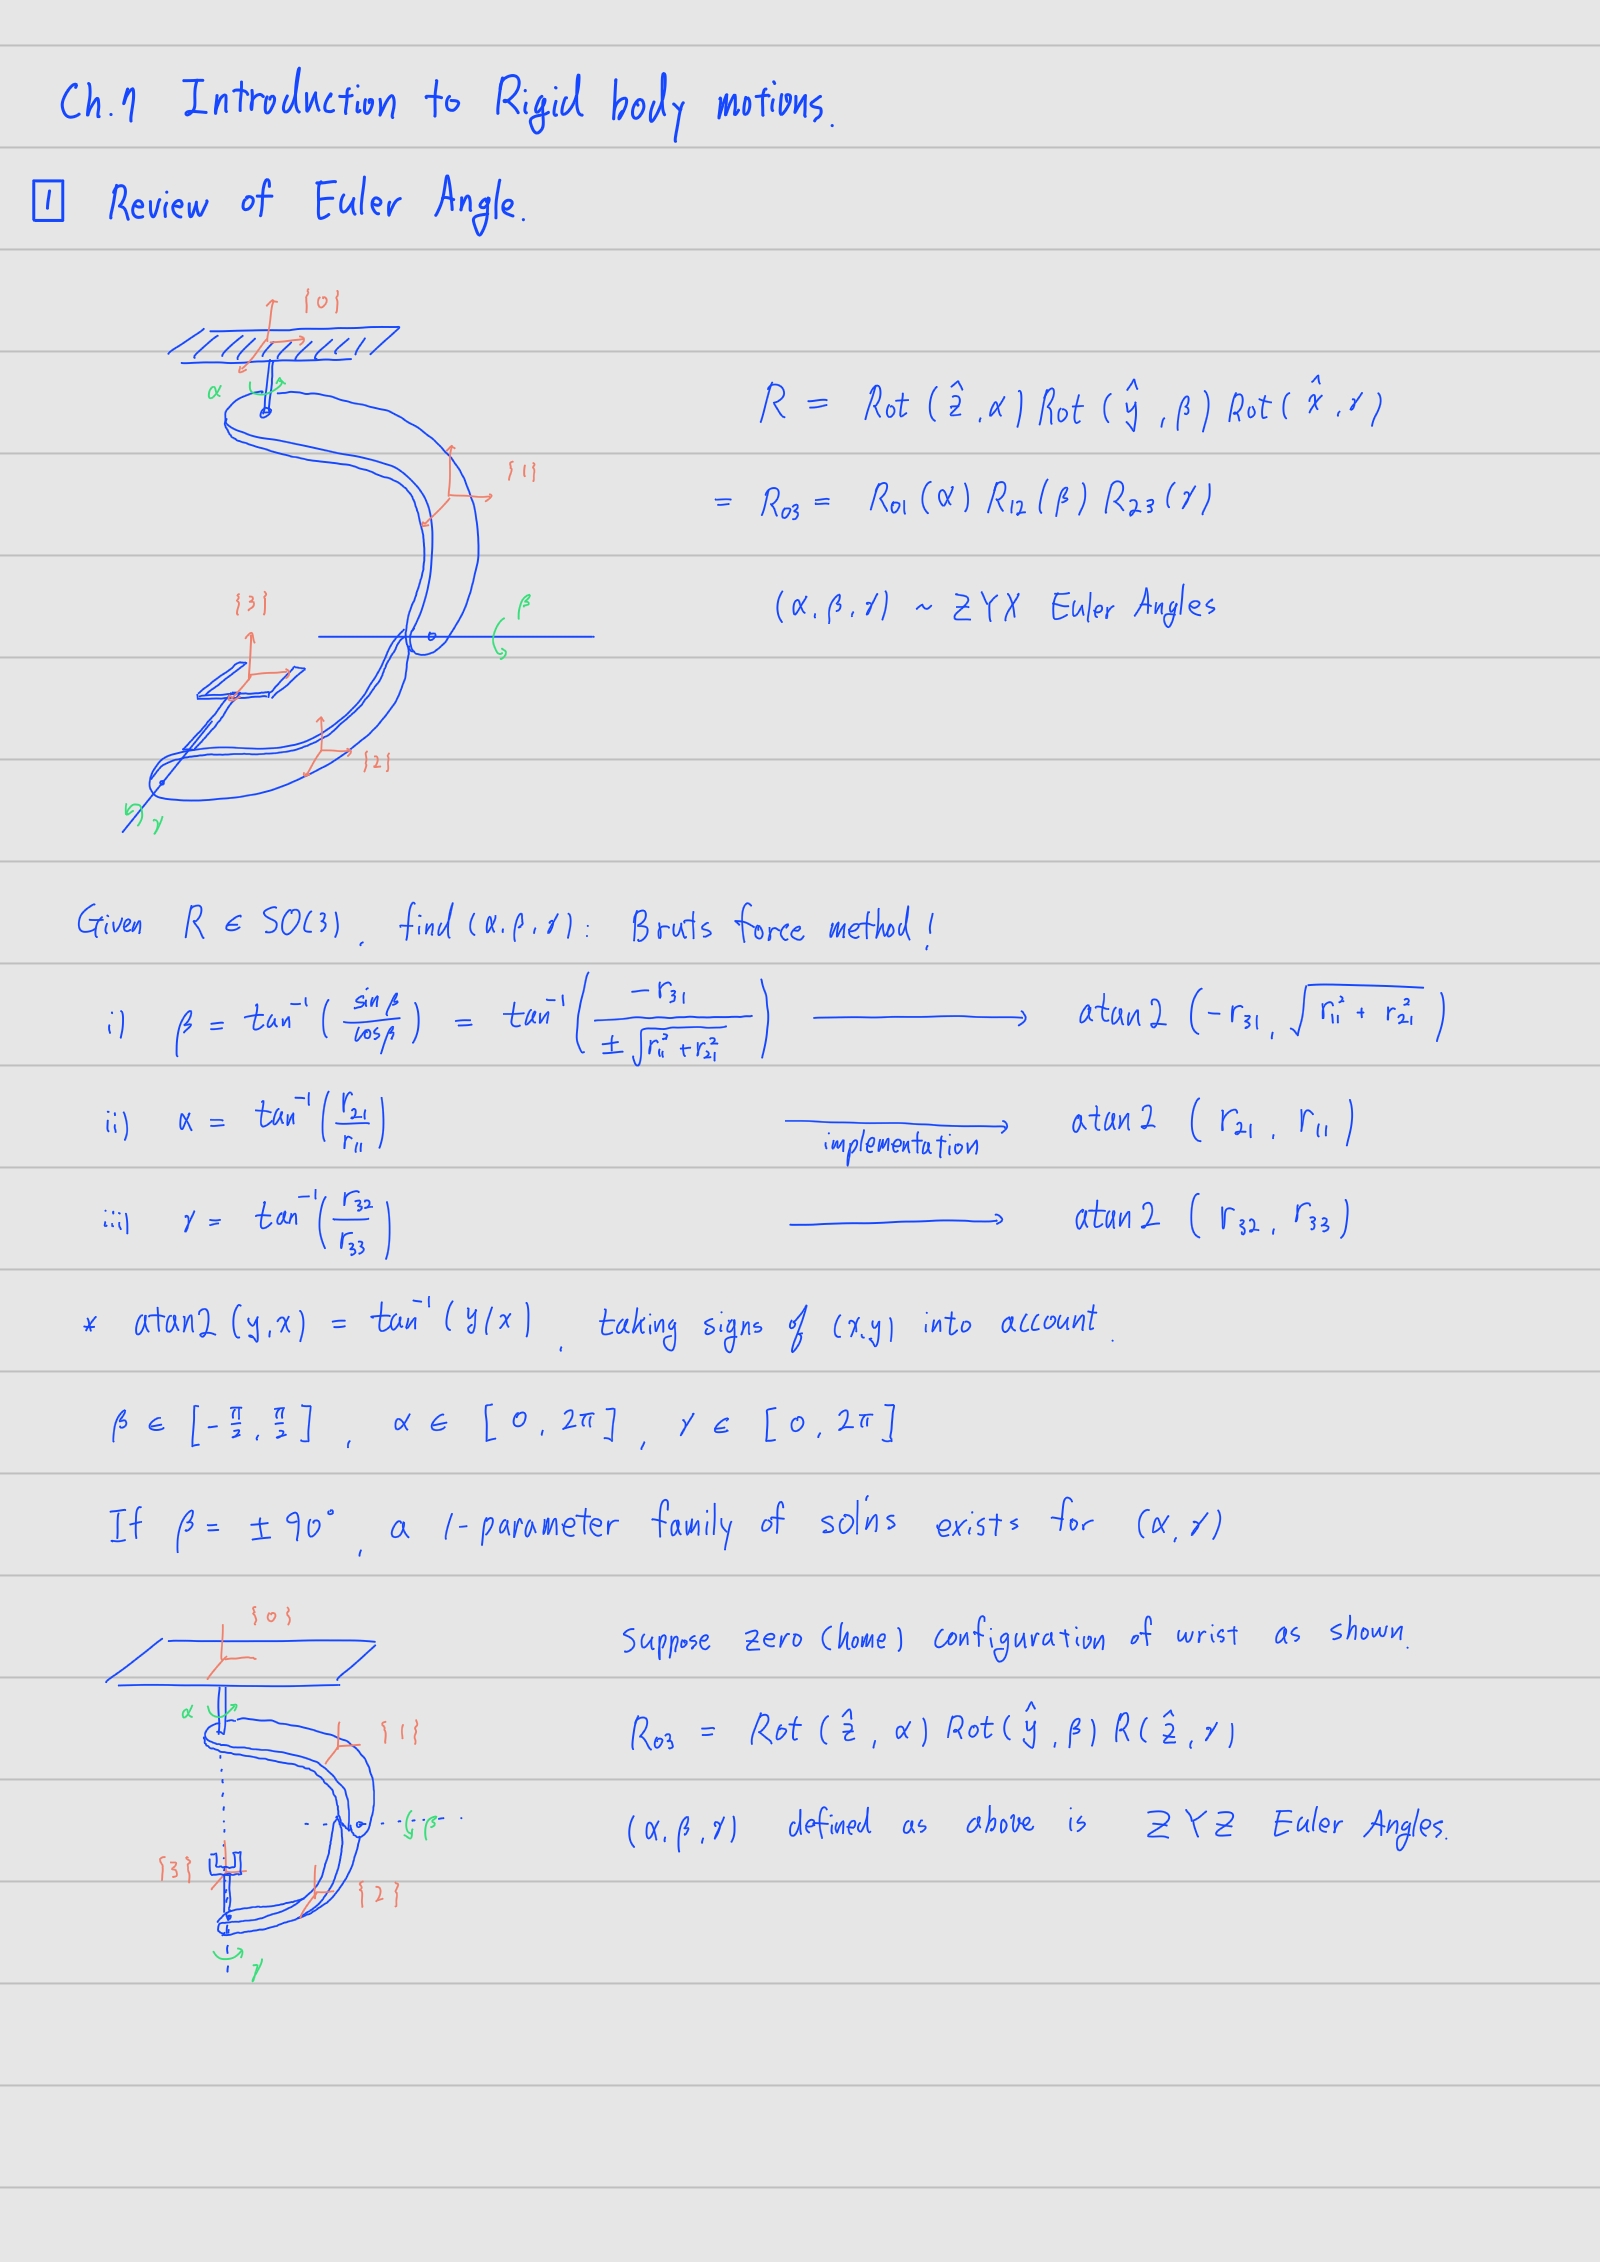 Ch.7 Introduction to Rigid body motions.
1 Review of Euler Angle.
{0}
α
{1}
R = Rot(ẑ, α) Rot(ŷ, β) Rot(x̂, γ)
= R₀₃ = R₀₁(α) R₁₂(β) R₂₃(γ)
{3}
β
(α, β, γ) ~ ZYX Euler Angles
{2}
γ
Given R ∈ SO(3), find (α, β, γ): Bruts force method!
i) β = tan⁻¹(sin β / cos β) = tan⁻¹(-r₃₁ / ±√(r₁₁² + r₂₁²)) → atan2(-r₃₁, √(r₁₁² + r₂₁²))
ii) α = tan⁻¹(r₂₁ / r₁₁) → implementation atan2(r₂₁, r₁₁)
iii) γ = tan⁻¹(r₃₂ / r₃₃) → atan2(r₃₂, r₃₃)
* atan2(y,x) = tan⁻¹(y/x), taking signs of (x,y) into account.
β ∈ [-π/2, π/2], α ∈ [0, 2π], γ ∈ [0, 2π]
If β = ±90°, a 1-parameter family of sol'ns exists for (α, γ)
{0}
Suppose zero (home) configuration of wrist as shown.
α
{1}
R₀₃ = Rot(ẑ, α) Rot(ŷ, β) R(ẑ, γ)
β
(α, β, γ) defined as above is ZYZ Euler Angles.
{3}
{2}
γ